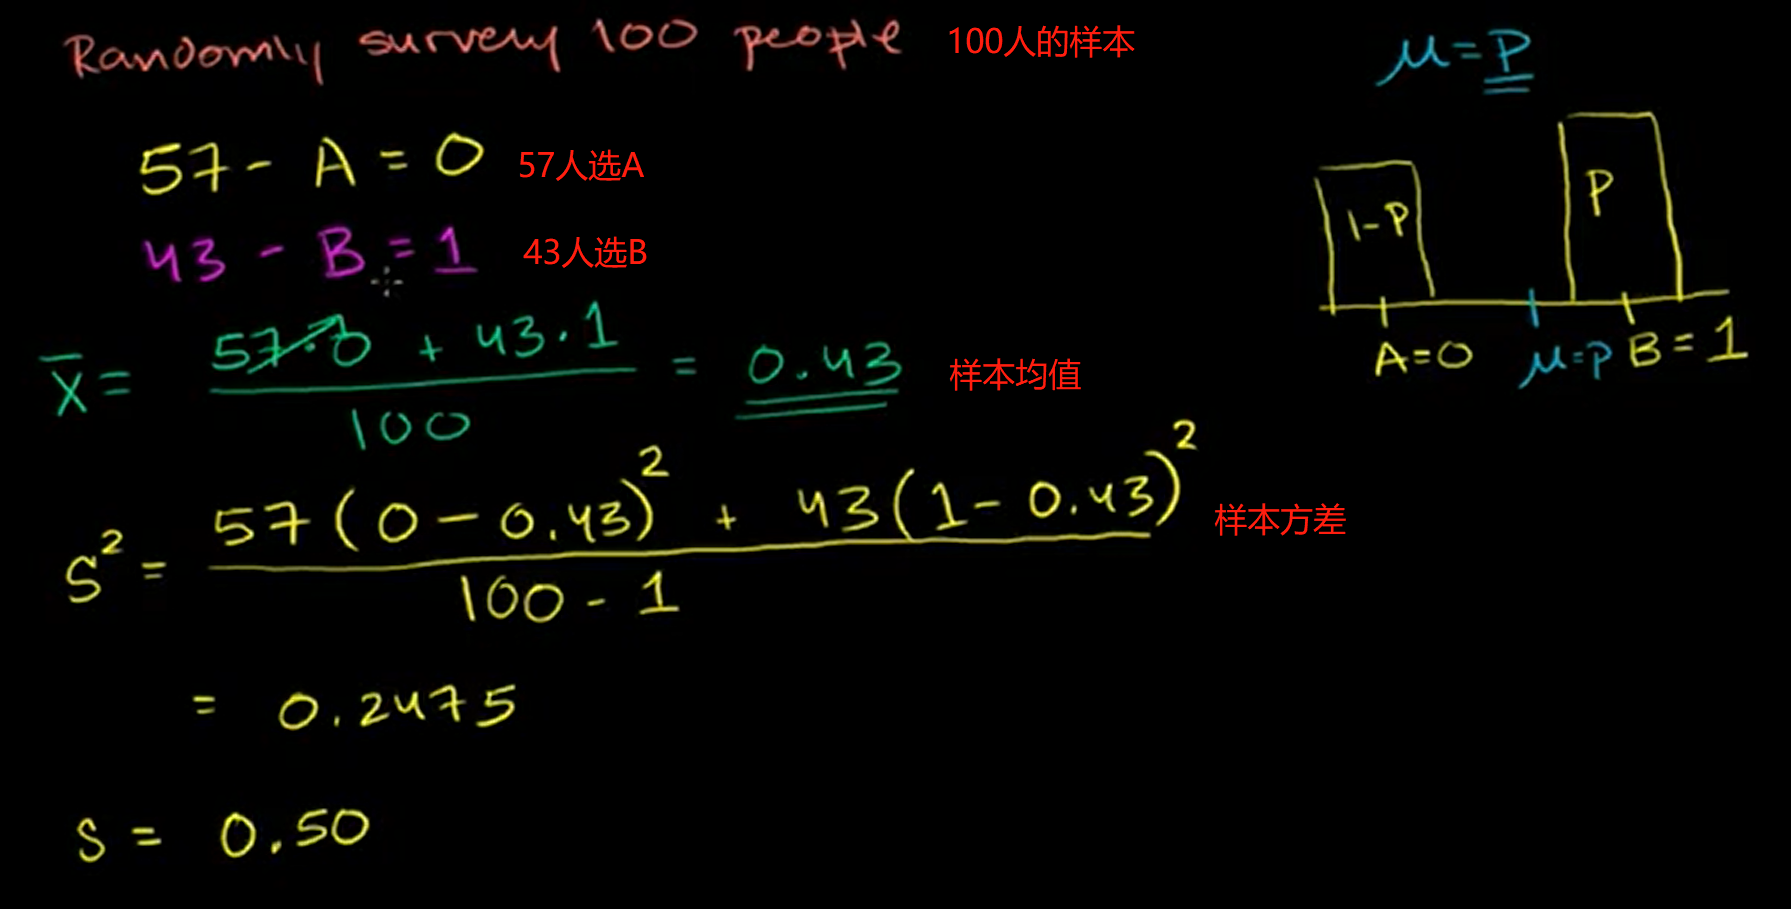 Randomly survey 100 people 100人的样本
57 - A = 0 57人选A
43 - B = 1 43人选B
x̄ = (57·0 + 43·1) / 100 = 0.43 样本均值
S² = (57(0 - 0.43)² + 43(1 - 0.43)²) / (100 - 1) 样本方差
= 0.2475
S = 0.50
μ = P
1-P
P
A=0 μ=P B=1